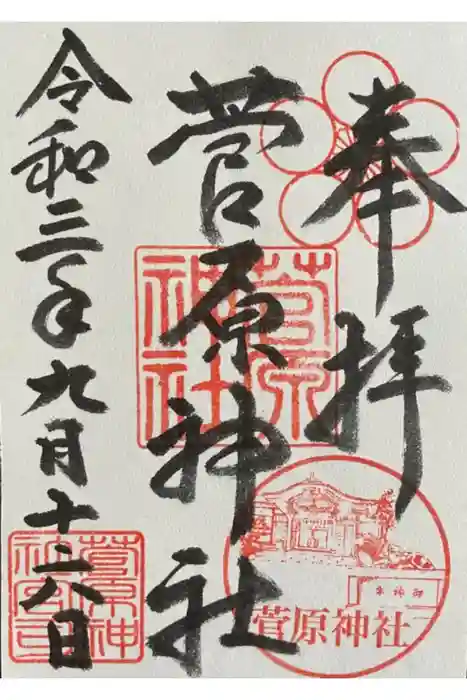 奉拝
菅原神社
令和三年九月十六日
菅原神社
菅原神社
菅原神社宮司